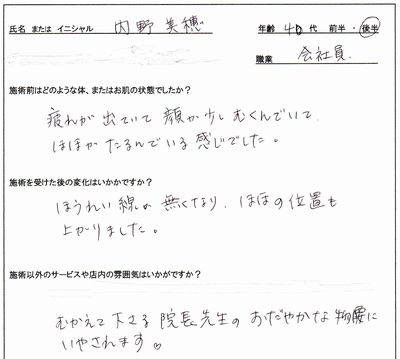 氏名 または イニシャル 内野 美穂 年齢 40 代 前半 ・ 後半
職業 会社員.
施術前はどのような体、またはお肌の状態でしたか?
疲れが出ていて 顔が少しむくんでいて、
ほほがたるんでいる感じでした。
施術を受けた後の変化はいかかですか?
ほうれい線が無くなり、ほほの位置も
上がりました。
施術以外のサービスや店内の雰囲気はいかがですか?
むかえて下さる院長先生のおだやかな物腰に
いやされます。